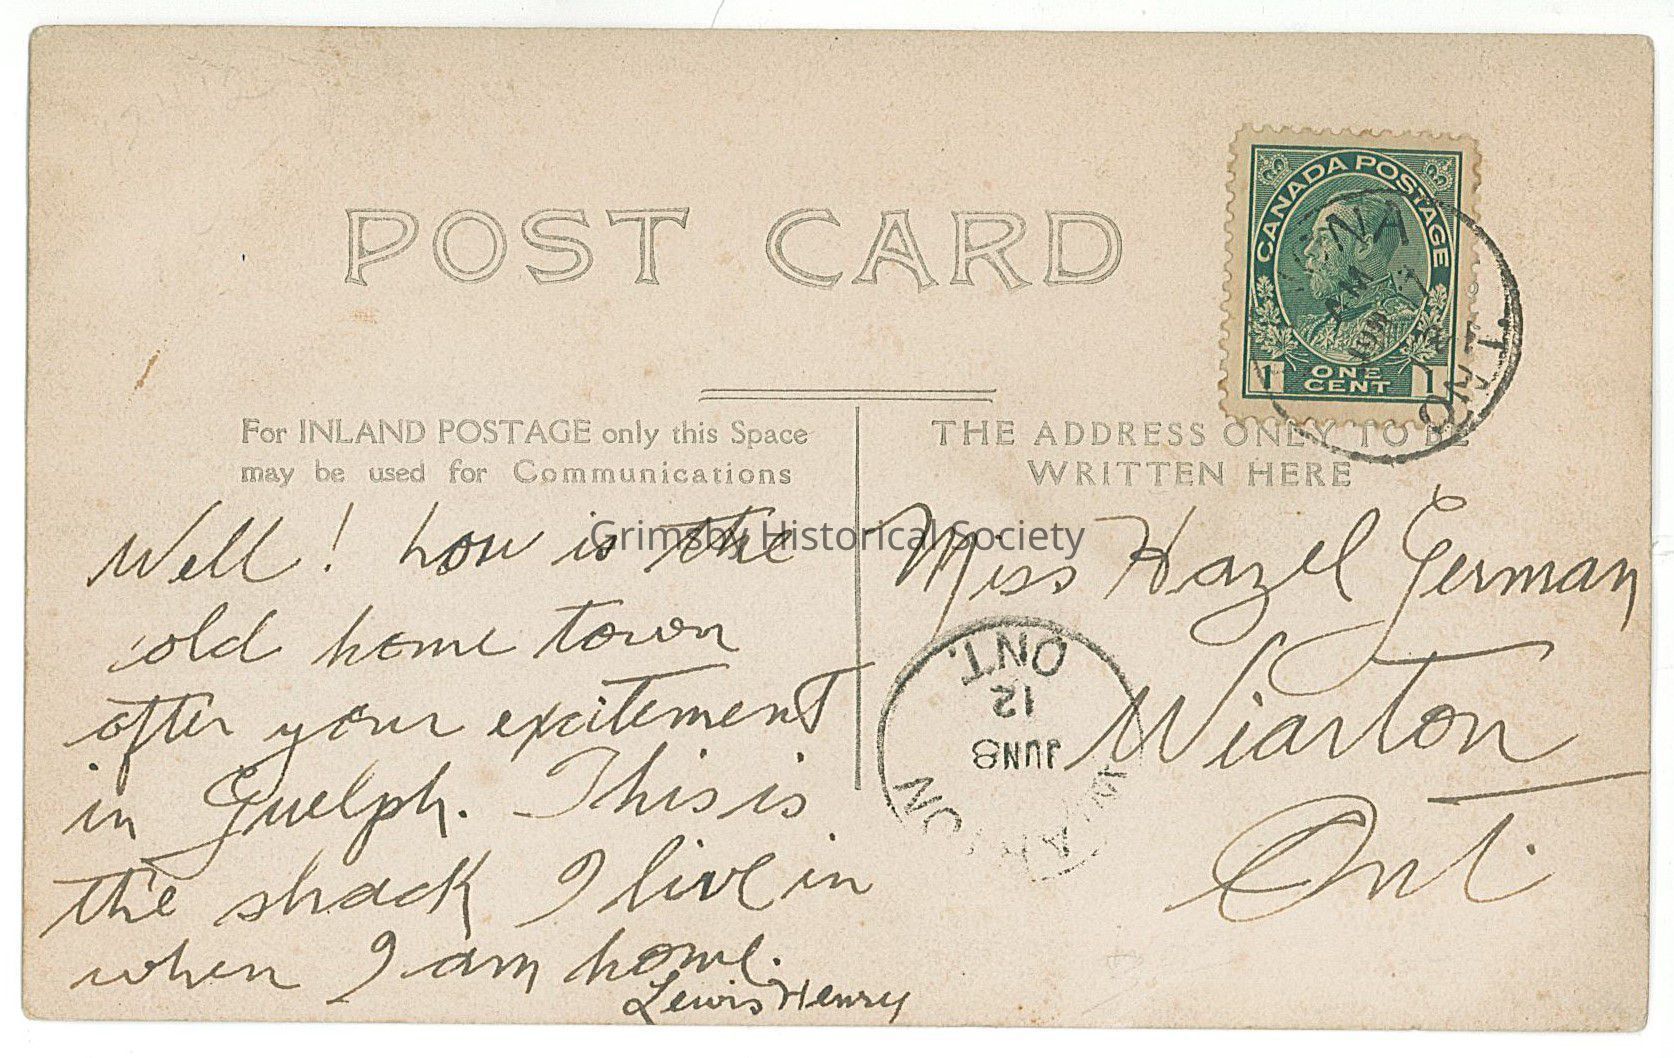 POST CARD
CANADA POSTAGE
1 ONE CENT 1
NA
AM
ONT.
For INLAND POSTAGE only this Space
may be used for Communications
THE ADDRESS ONLY TO BE
WRITTEN HERE
Grimsby Historical Society
Well! how is the
old home town
after your excitement
in Guelph. This is
the shack I live in
when I am home.
Lewis Henry
Miss Hazel German
Wiarton
Ont.
WIARTON
JUN 8
12
ONT.